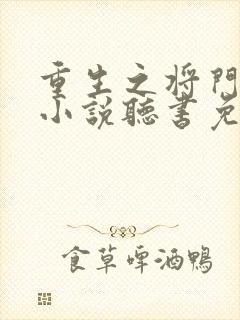 重生之将門
小説聽書免
食草啤酒鴨